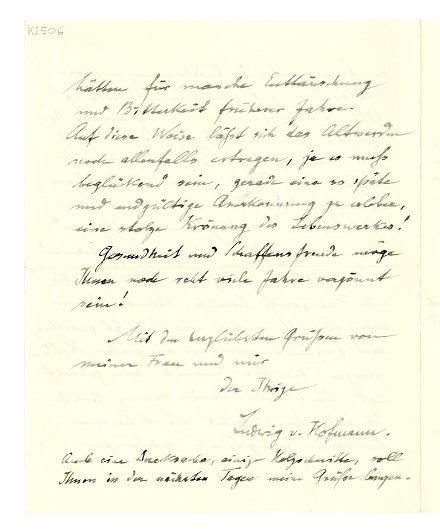 K2506
hätten für manche Enttäuschung
und Bitterkeit früherer Jahre.
Auf diese Weise läßt sich das Altwerden
noch allenfalls ertragen, ja es muß
beglückend sein, gerade eine so späte
und endgültige Anerkennung zu erleben,
eine stolze Krönung des Lebenswerkes!
Gesundheit und Schaffensfreude möge
Ihnen noch recht viele Jahre vergönnt
sein!
Mit den herzlichsten Grüßen von
meiner Frau und mir
der Ihrige
Ludwig v. Hofmann.
Auch eine Drucksache, einige Holzschnitte, soll
Ihnen in den nächsten Tagen meine Grüße bringen.